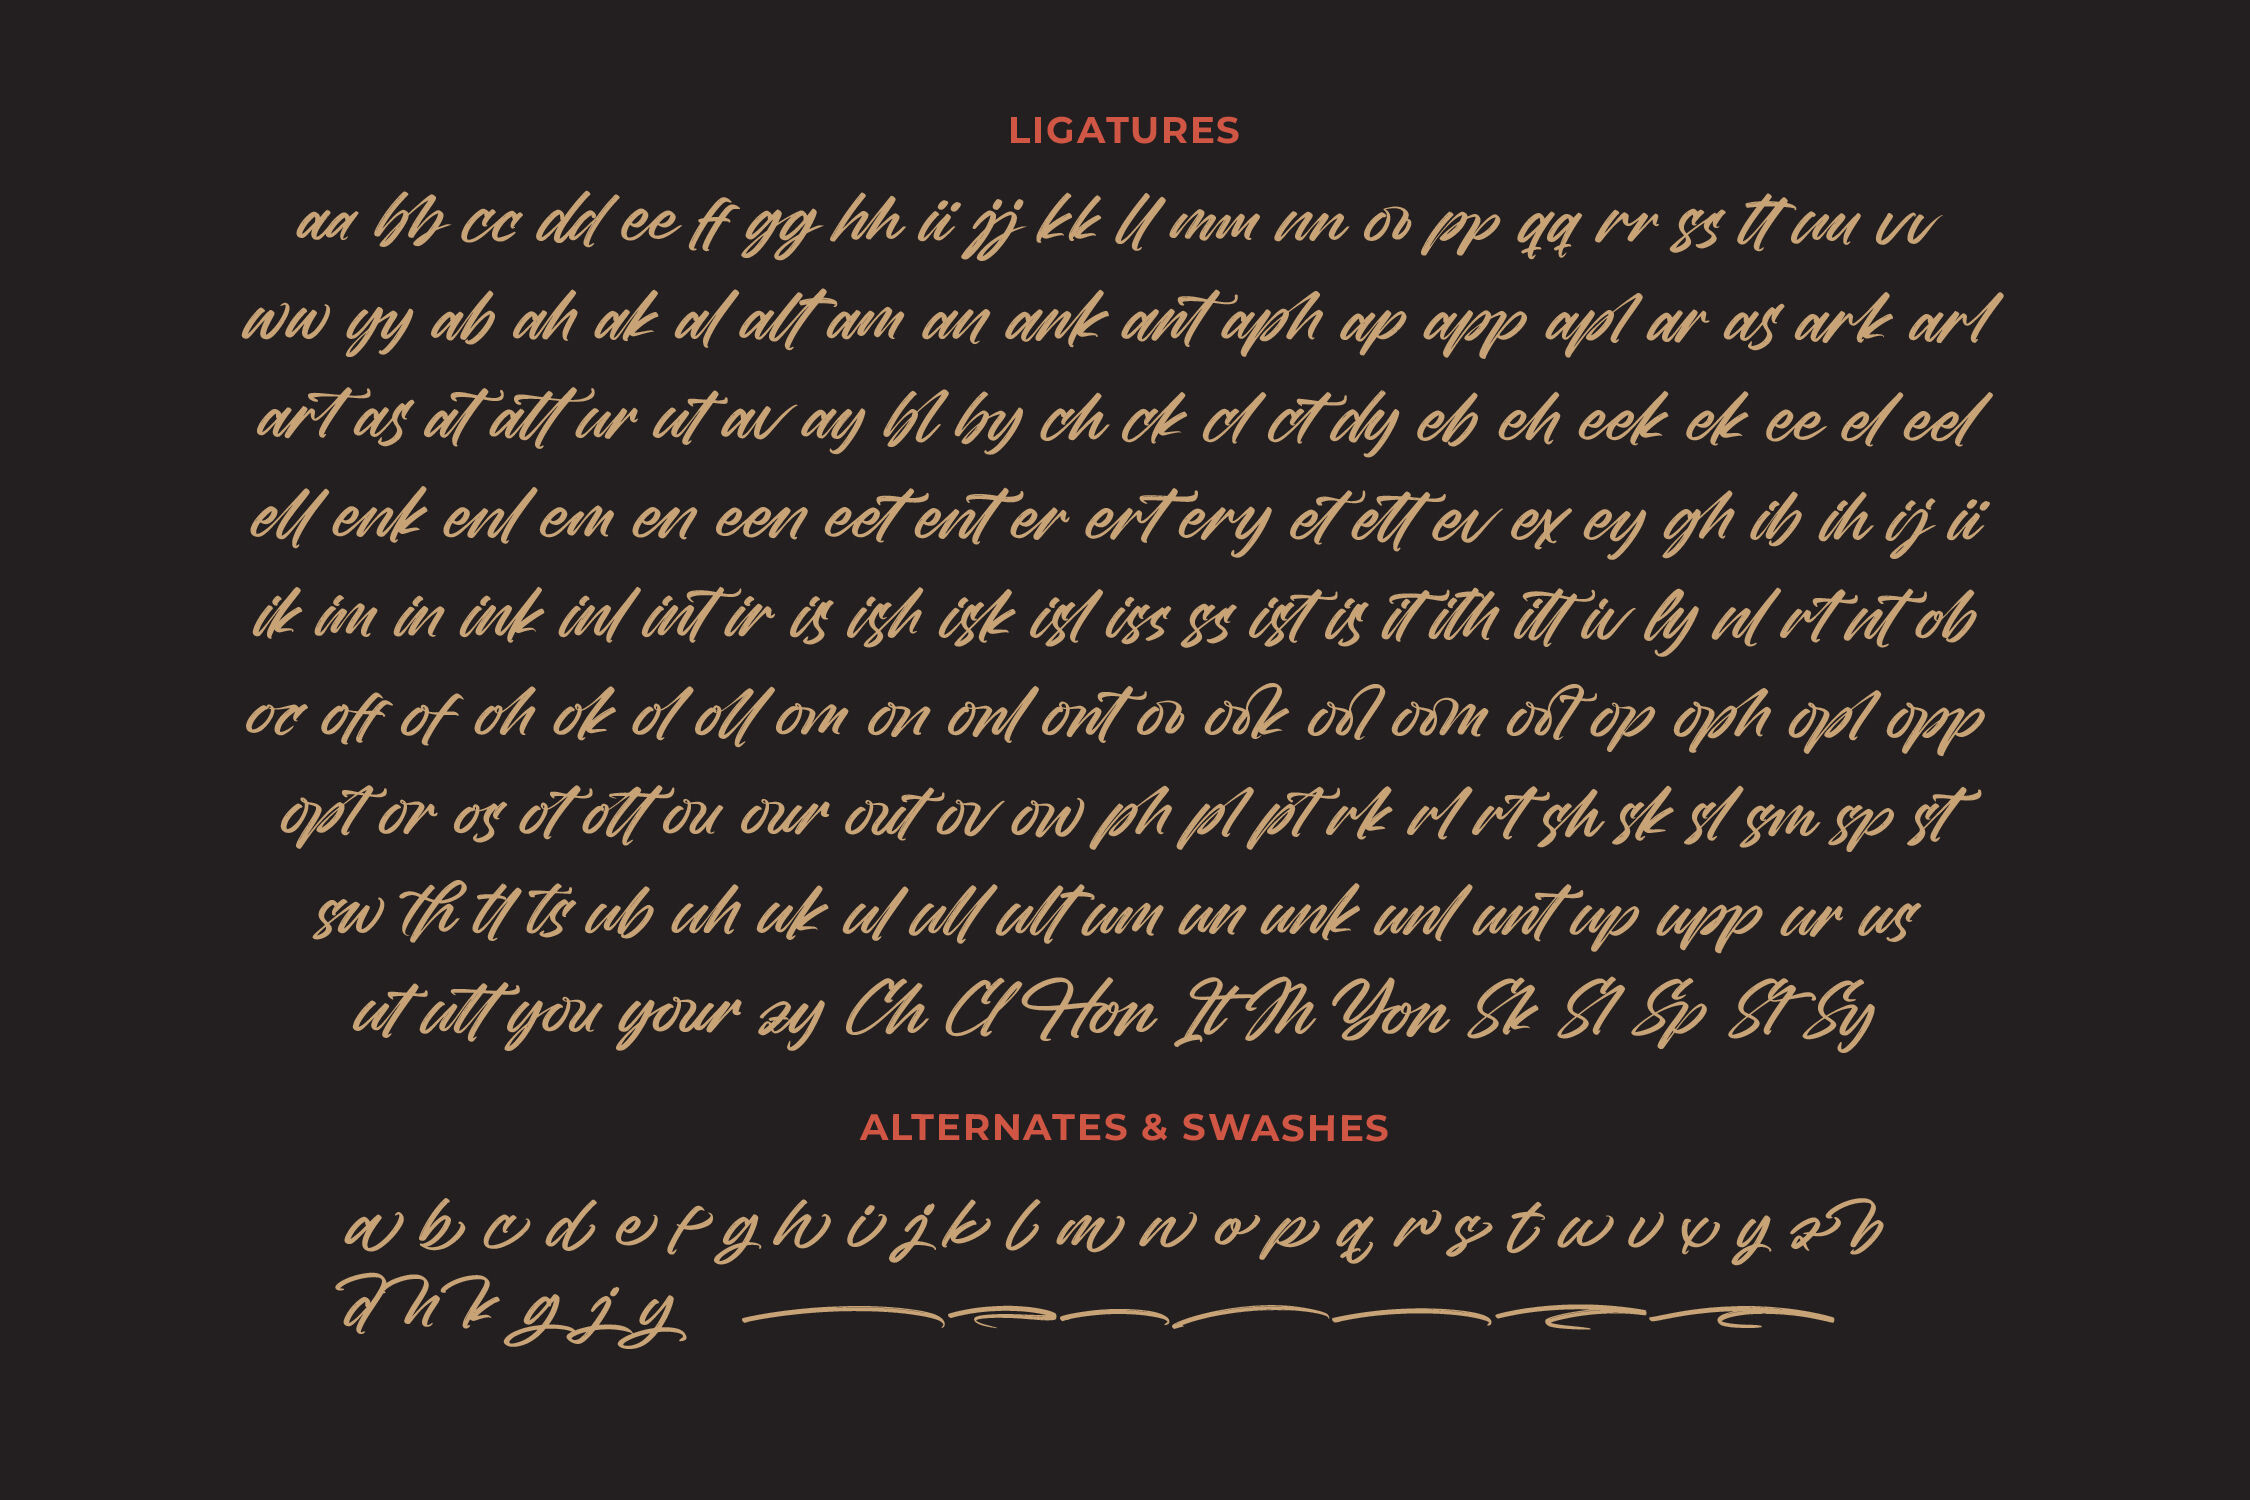 LIGATURES
aa bb cc dd ee ff gg hh ii jj kk ll mm nn oo pp qq rr ss tt uu vv
ww yy ab ah ak al alt am an ank ant aph ap app apl ar as ark arl
art as at att ur ut av ay bl by ch ck cl ct dy eb eh eek ek ee el eel
ell enk enl em en een eet ent er ert ery et ett ev ex ey gh ib ih ij ii
ik im in ink inl int ir is ish isk isl iss ss ist is it ith itt iv ly nl rt nt ob
oc off of oh ok ol oll om on onl ont oo ook ool oom oot op oph opl opp
opt or os ot ott ou our out ov ow ph pl pt rk rl rt sh sk sl sm sp st
sw th tl ts ub uh uk ul ull ult um un unk unl unt up upp ur us
ut utt you your zy Ch Cl Hon It M Yon Sk Sl Sp St Sy
ALTERNATES & SWASHES
a b c d e f g h i j k l m n o p q r s t u v x y z b
d h k g j y